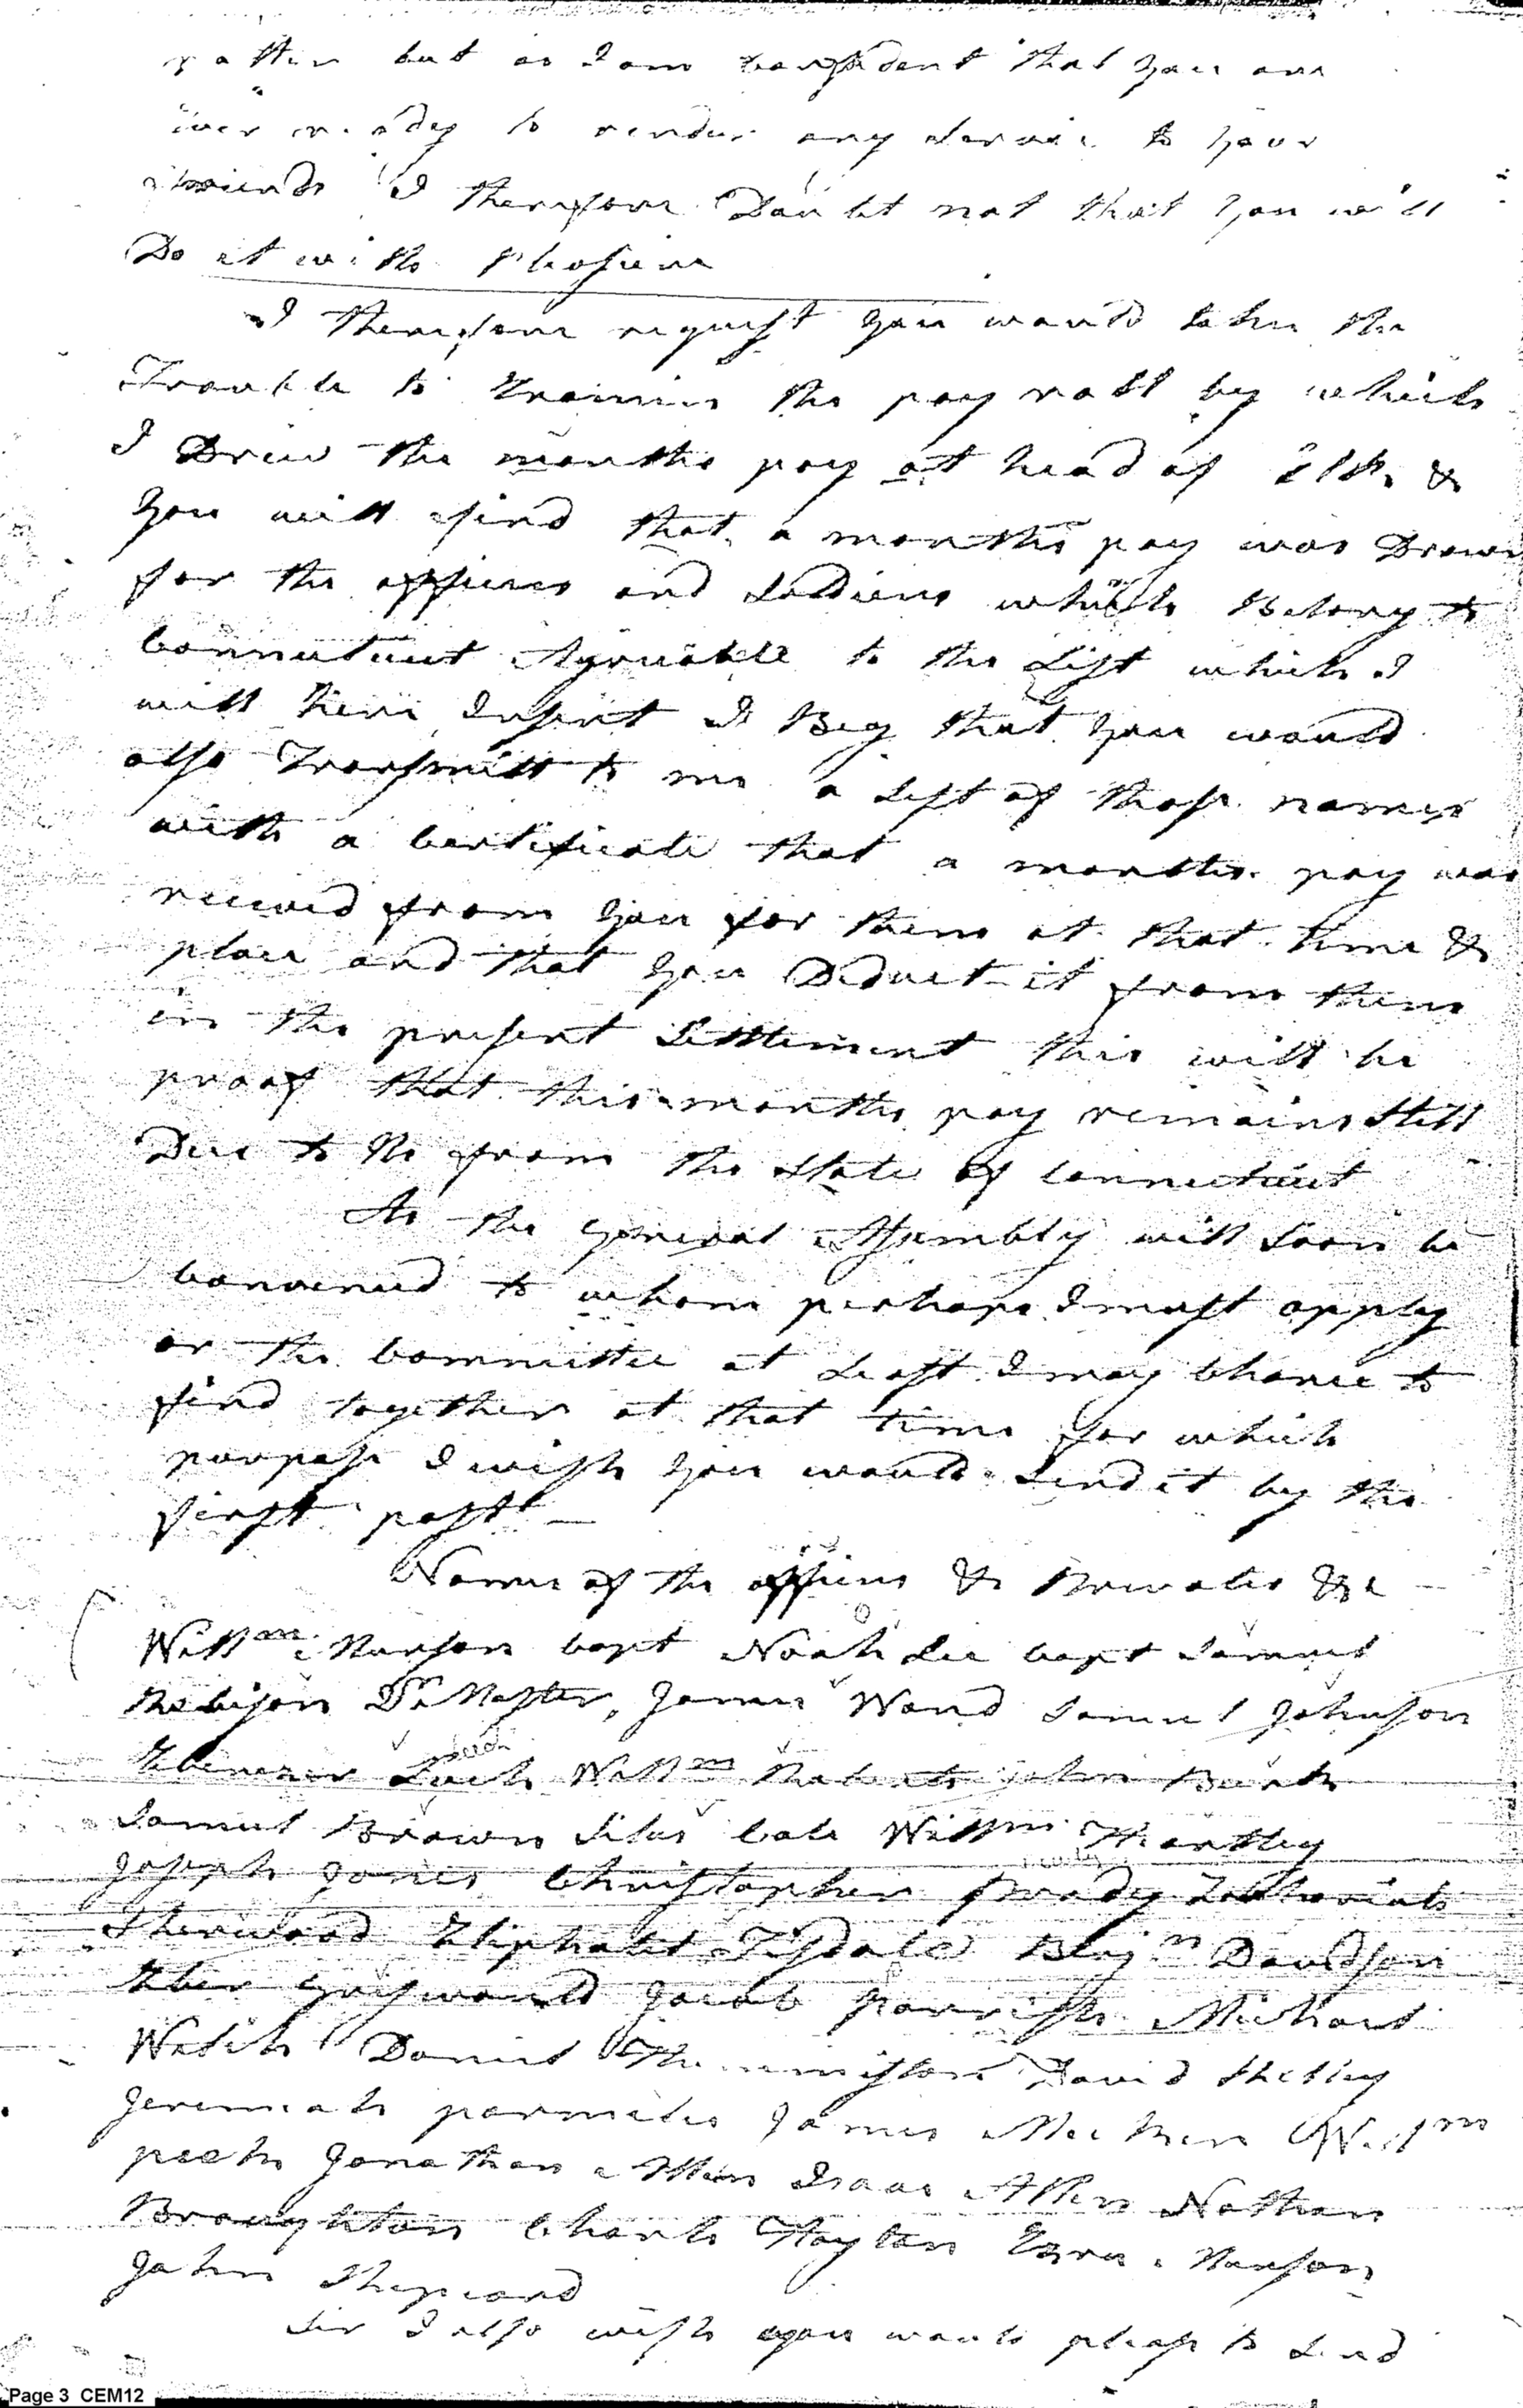 matter but as I am Confident that you are
ever ready to render any Service to your
friends I therefore Doubt not that you will
Do it with Pleasure
I therefore request you would take the
Trouble to Examine the pay roll by which
I Drew the months pay at head of Elk &
you will find that a months pay was Drawn
for the officers and Soldiers which Belong to
Connecticut Agreeable to the List which I
will here Insert I Beg that you would
also Transmitt to me a List of those names
with a Certificate that a months pay was
received from you for them at that time &
place and that you Deduct it from them
in the present Settlement this will be
proof that this months pay remains Still
Due to from the State of Connecticut
As the General Assembly will Soon be
Convened to whom perhaps I must apply
or the Committee at Least I may Chance to
find together at that time for which
purpose I wish you would Send it by the
first post
Names of the officers & Privates &c
Willm Munson Capt Noah Lee Capt Samuel
Robison Qr Master, James Ward Samuel Johnson
Ebenezer Leach Willm Roberts John Burk
Samuel Brown Silas Cole Willm Hartley
Joseph Jones Christopher Brady Zachariah
Sherwood Eliphalet Tisdale Benjn Davidson
Eber Griswould Jacob Parrish Michael
Welch Daniel David Shelley
Jeremiah parmele James Mc Willm
peck Jonathan Allen Isaac Allen Nathan
Broughton Charls Hoyton Ezra Munson
John Shepeard
Sir I also wish you would please to Send
Page 3 CEM12